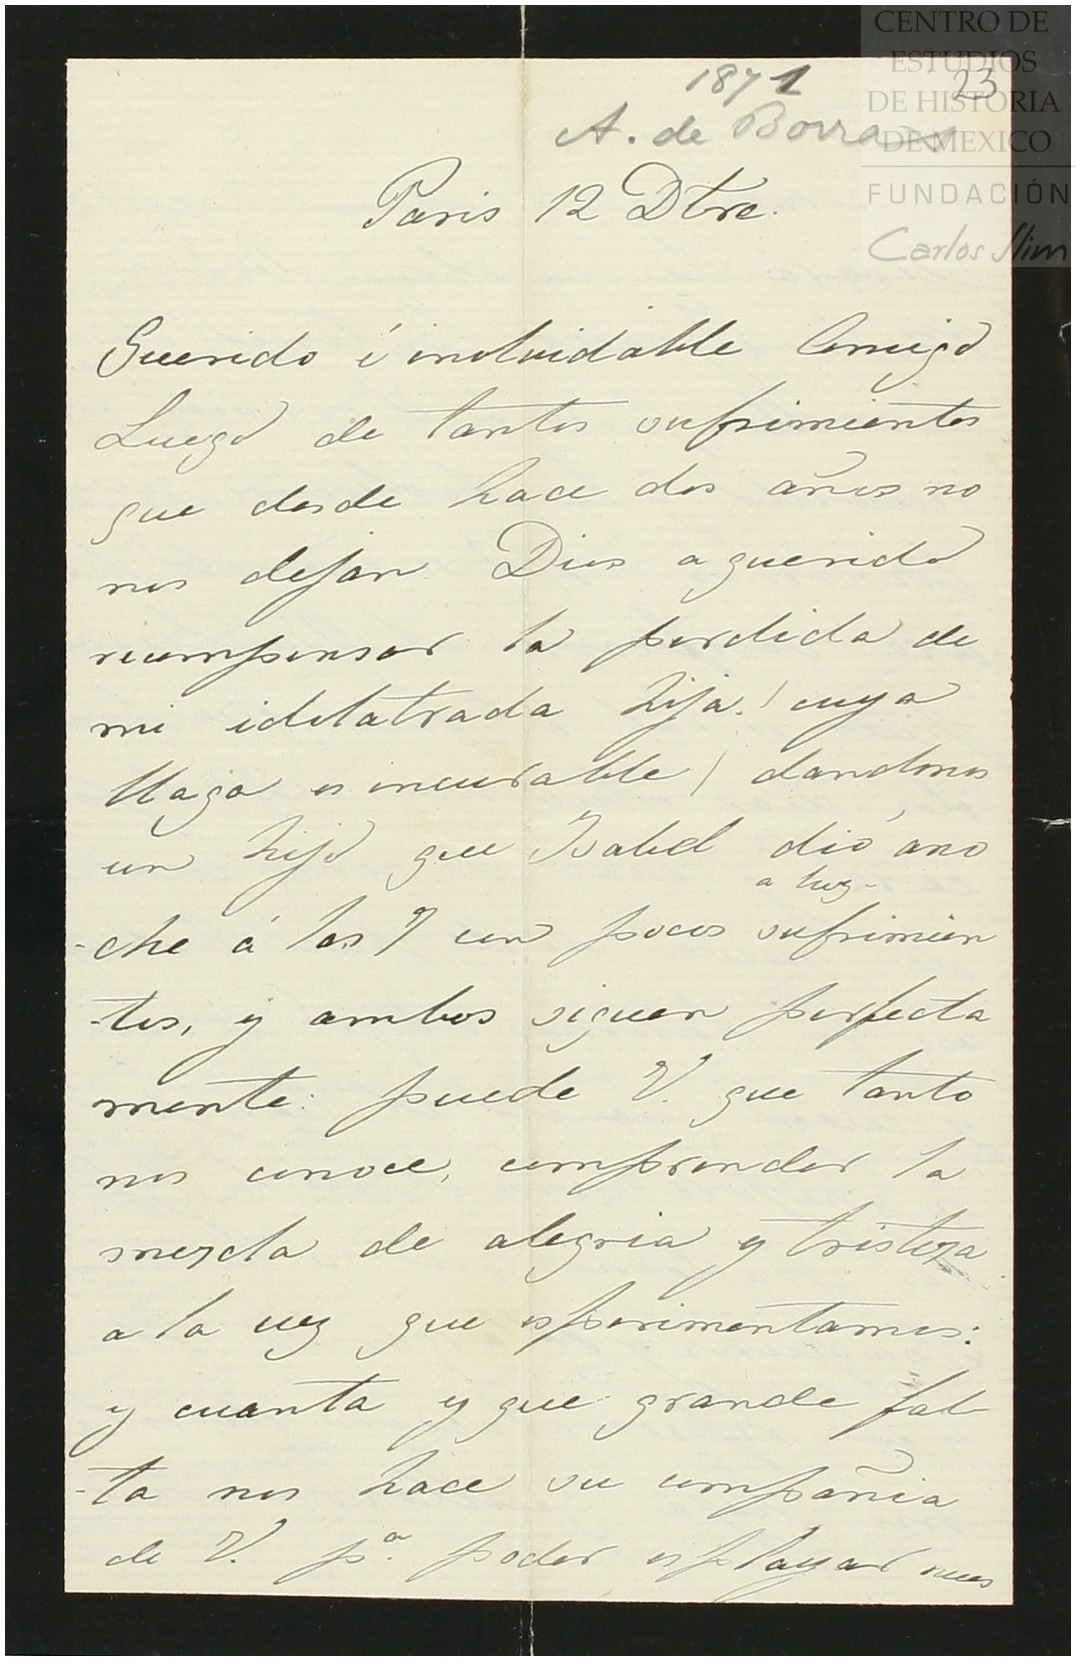 CENTRO DE
ESTUDIOS
DE HISTORIA
DE MEXICO
FUNDACIÓN
Carlos Slim
1871
23
A. de
Paris 12 Dtre.
Querido é inolvidable Amigo
Luego de tantos sufrimientos
que desde hace dos años no
nos dejan Dios a querido
recompensar la perdida de
mi idolatrada hija. (cuya
llaga es incurable) dandonos
un hijo que Isabel dió ano
a luz-
-che á las 7 con pocos sufrimien
-tos, y ambos siguen perfecta
mente: puede V. que tanto
nos conoce, comprender la
mezcla de alegria y tristeza
a la vez que esperimentamos:
y cuanta y que grande fal-
-ta nos hace su compañia
de V. pª. poder esplayar nues